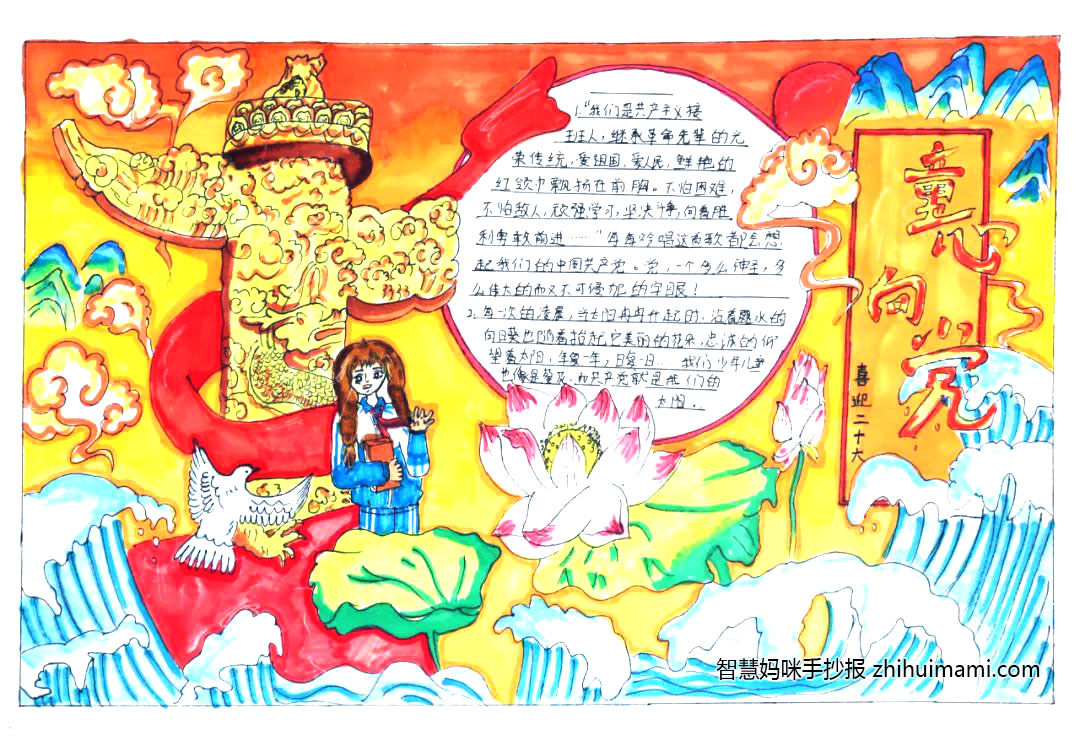 1.“我们是共产主义接
班人,继承革命先辈的光
荣传统,爱祖国,爱人民,鲜艳的
红领巾飘扬在前胸。不怕困难,
不怕敌人,顽强学习,坚决斗争,向着胜
利勇敢前进……”每每吟唱这首歌都会想
起我们的中国共产党。党,一个多么神圣,多
么伟大的而又不可侵犯的字眼!
2.每一次的凌晨,当太阳冉冉升起时,沾着露水的
向日葵也随着抬起它美丽的花朵,忠诚的仰
望着太阳,年复一年,日复一日…我们少年儿童
也像是葵花,而共产党就是我们的
太阳。
童心向党
喜迎二十大
智慧妈咪手抄报 zhihuimami.com